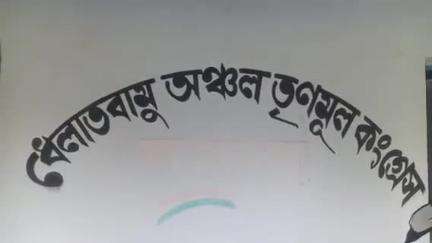 খেলাতবামু অঞ্চল তৃণমূল কংগ্রেস